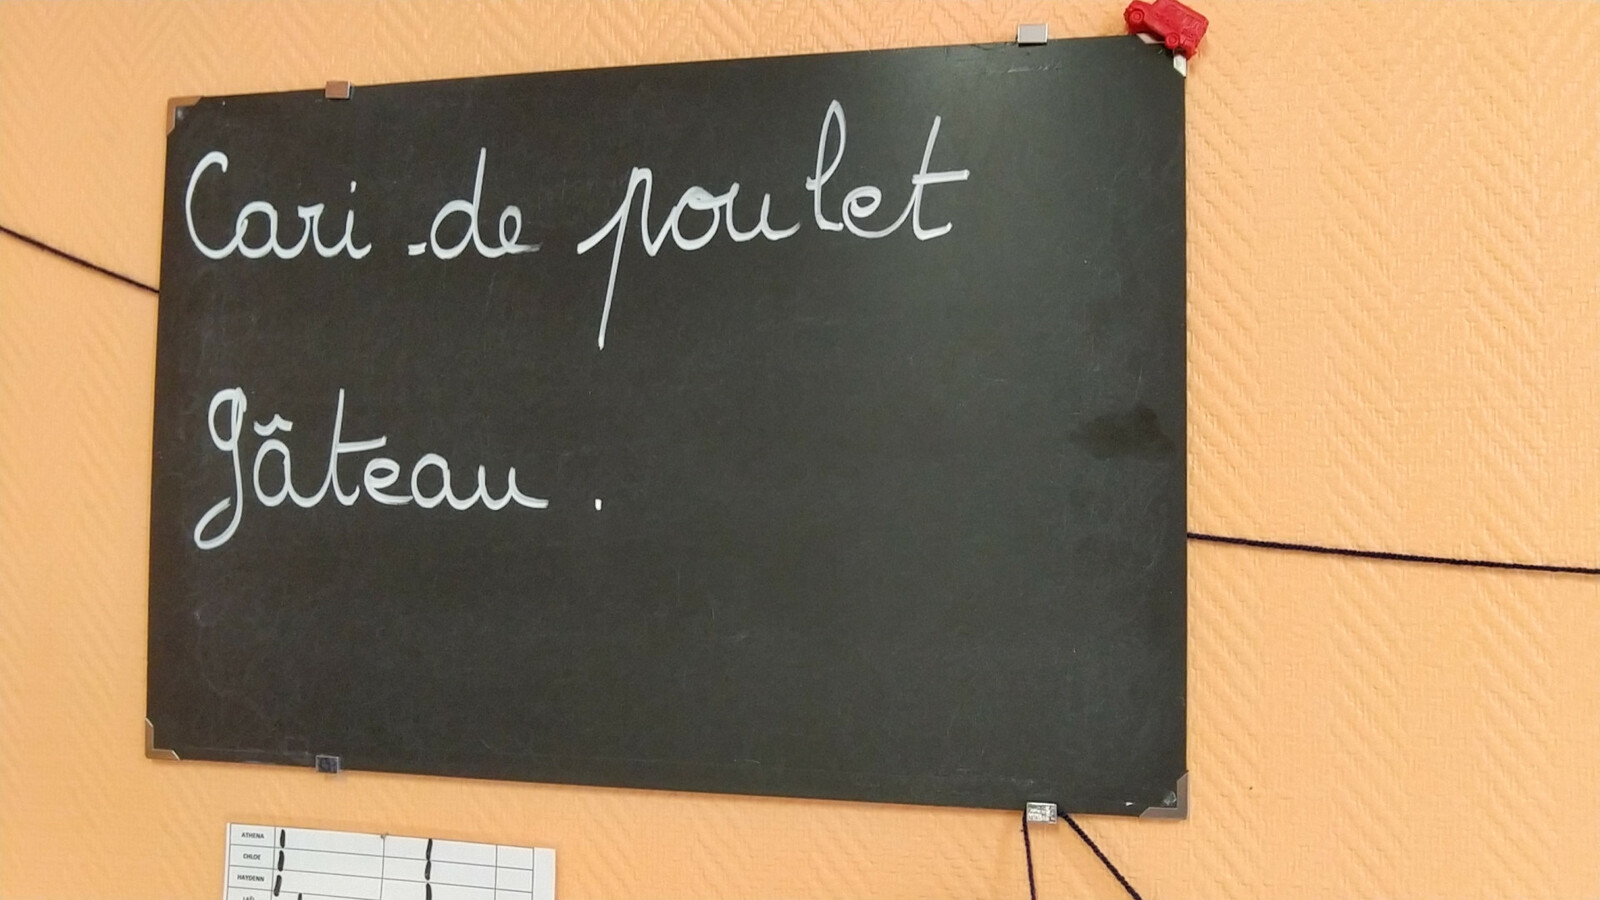 Cari de poulet
gâteau.
ATHENA
CHLOE
HAYDENN